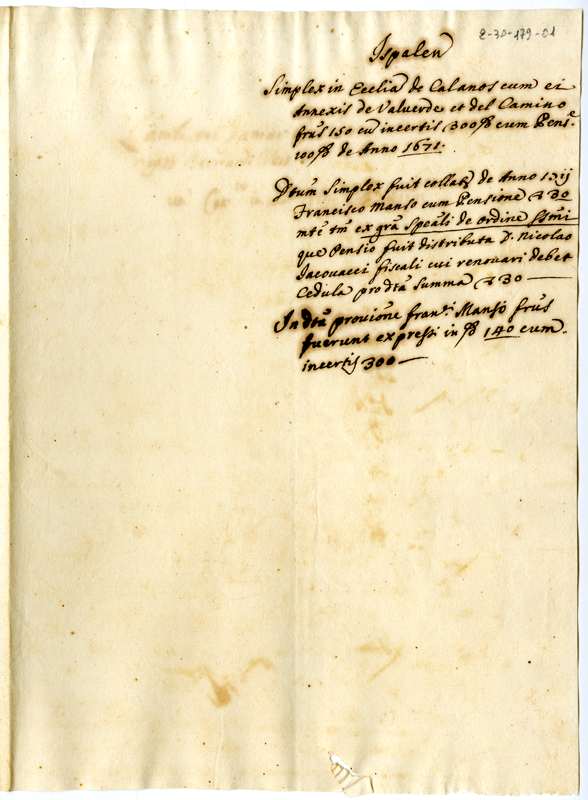 2-30-179-01
Ispalen
Simplex in Ecclia de Calanos cum ei
Annexis de Valuerde et del Camino
frus 150 cu incertis 300 cum Pens.e
100 de Anno 1671.
Dtum Simplex fuit collat de Anno
Francisco Manso cum Pensione 30
mte tm ex gra Speali de ordine ssmi
que Pensio fuit distributa D. Nicolao
Iacouacci fiscali cui renouari debet
Cedula pro dta summa 30
In dta prouisione fran.i Manso frus
fuerunt expressi in 140 cum
incertis 300